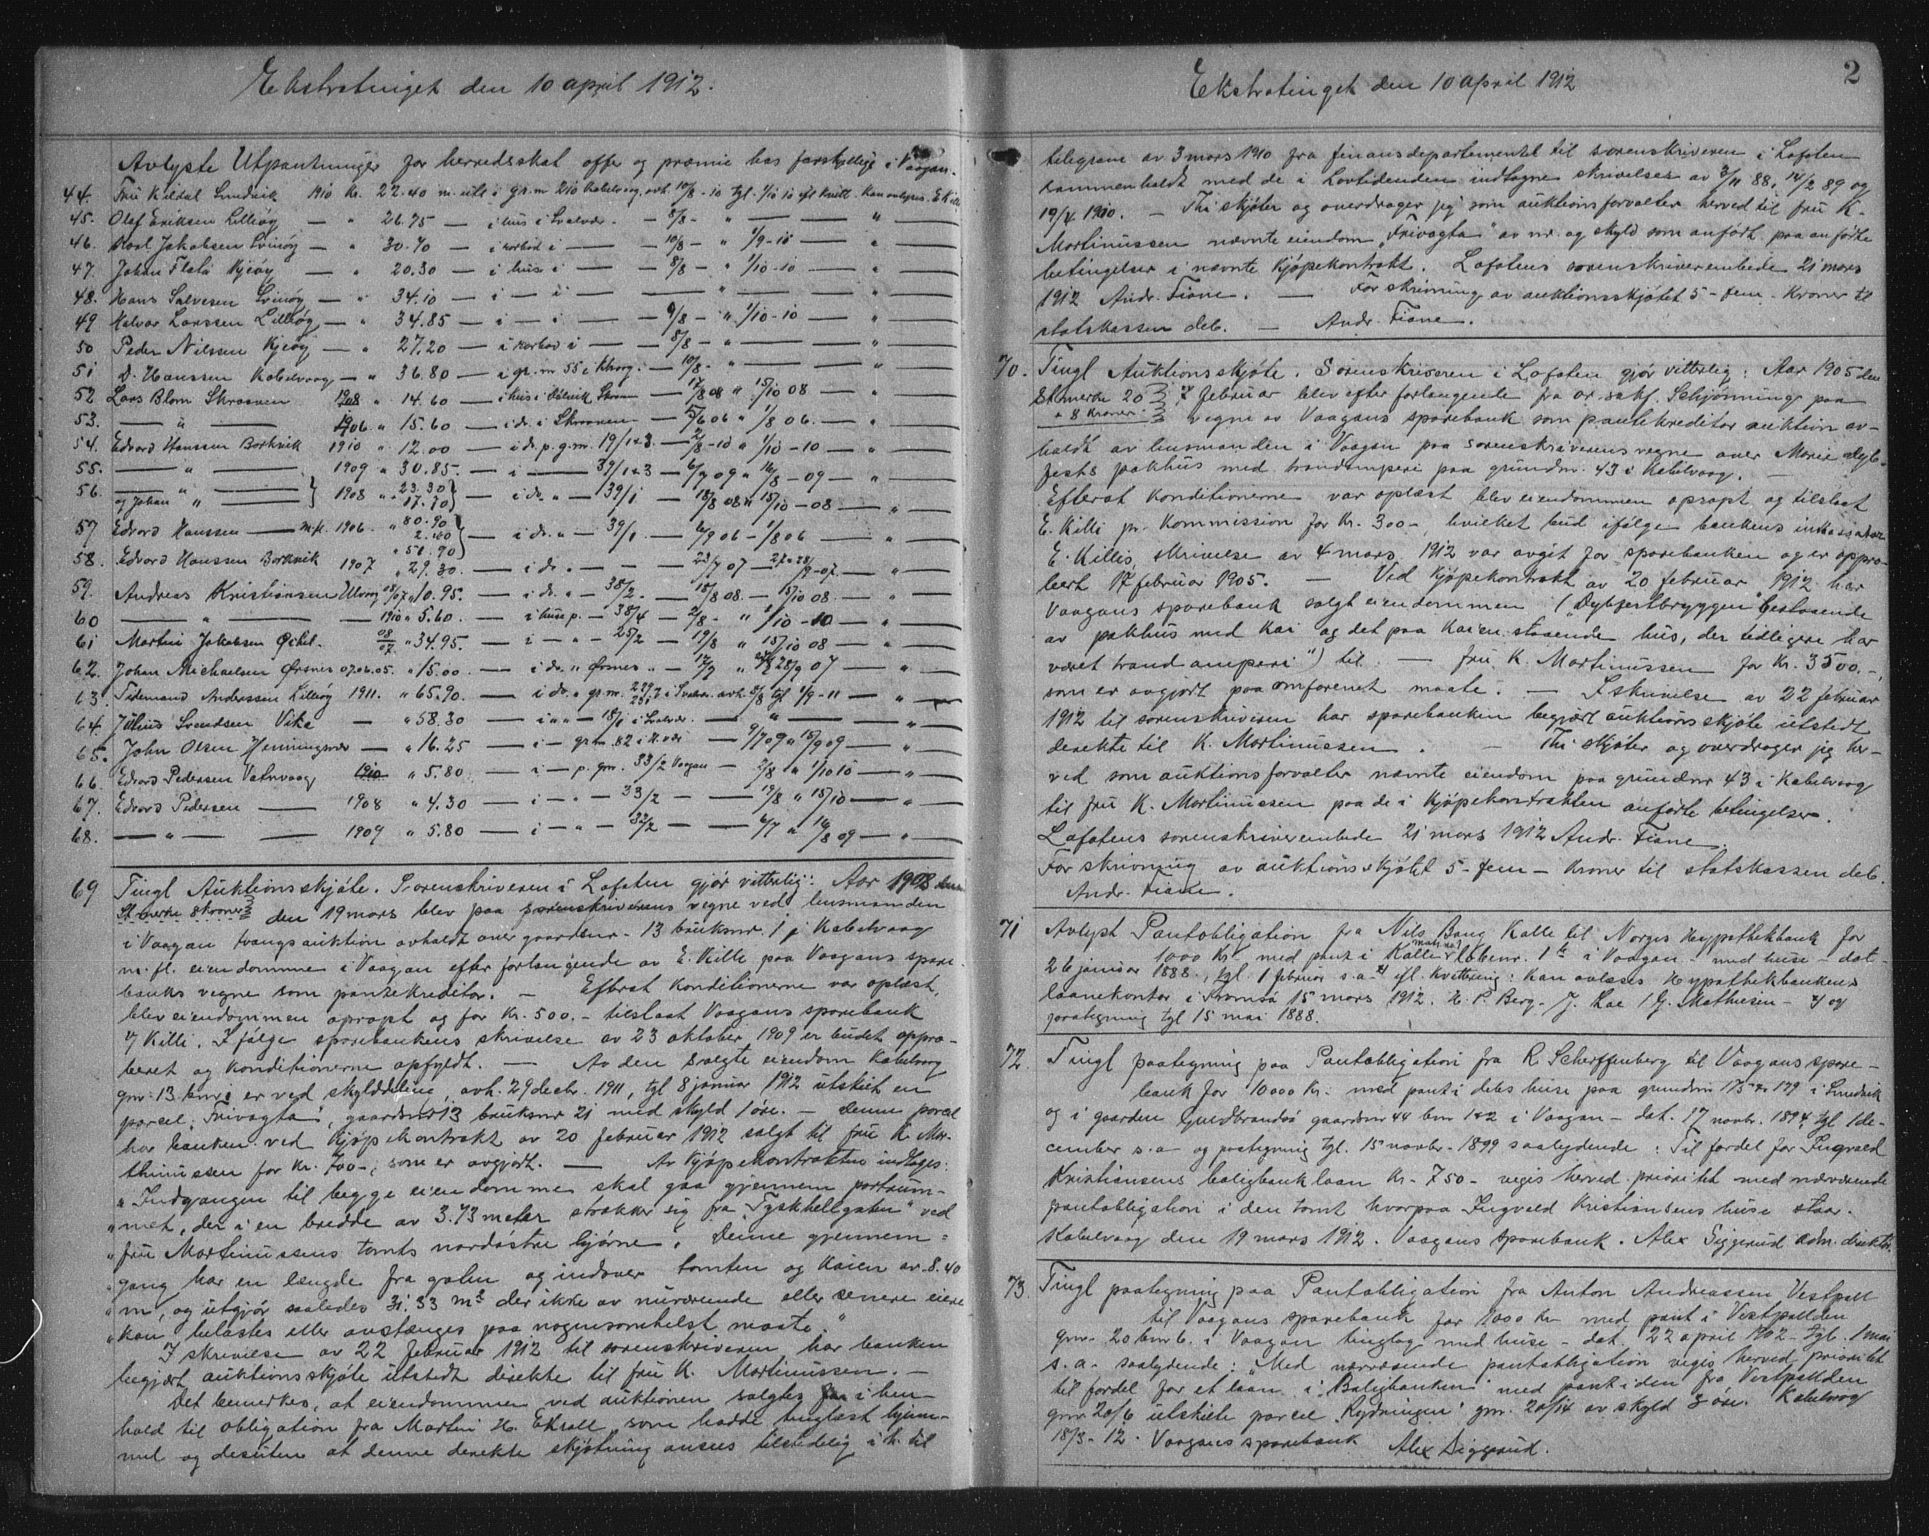 Ekstratinget den 10 april 1912.
Avlyste Utpantninger for herredsskat offer og præmie hos forskjellige i Vaagan.
44. Fru Kildal Smedvik 1910 Kr. 22.40 m. utl. i gr. nr 210 Kabelvaag, avh. 10/8 - 10 tgl. 1/10 10 efl. kvitt. Kan avlyses. E Killi
45. Olaf Eriksen Lilleøy — " 26.75 — i hus i Svolvær — 8/8 - " — "
46. Karl Jakobsen Svinøy — " 30.70 — i rorbod i — 10/8 - " 1/9-10 — "
47. Johan Flaa Kjeøy — " 20.30 — i hus i — 8/8 - " 1/10-10 — "
48. Hans Salvesen Svinøy — " 34.10 — i — i — — " — "
49 Halvor Larssen Lilleøy — " 34.85 — i — i — 9/8 - " 1/10-10 — "
50 Peder Nilssen Kjeøy — " 27.20 — i rorbod i — 8/8 - " — "
51 D. Hanssen Kabelvaag — " 36.80 — i gr. nr 55 i Kbvg. — 10/8 - " — "
52 Lars Blom Skraaven 1908 " 14.60 — i hus i Skraaven — 17/8 08 " 15/10 08 — "
53. — " — 1906 " 15.60 — i do. i Skraaven — 15/6 06 " 1/8 06. — "
54. Edvard Hanssen Børkvik 1910 " 12.00 — i do p. g. nr. 19/1+3. — 2/8 - 10 " 1/10 - 10 — "
55. — " — 1909 " 30.85. — i — 39/1+3 — 6/7 09 " 16/8 - 09 — "
56. — " — og Johan " — } 1908 " 23.30 17.70 } — i do. " — 39/1 — 18/8 08 " 15/10 - 08. — "
57 Edvard Hanssen — m.fl. 1906. " 80.90 2.40 } — i do. " — 39/1. — 6/9 06 - 1/8 06 — "
58. Edvard Hanssen Børkvik 1907 " 51.90 " 29.30. — i do. — — — 23/7 07 — 27 - 28/9 - 07. — "
59. Andreas Kristiansen Ulvøy 08/07 " 10.95. — i do. " — 38/2. — 18/8 08. — 15/10 08 — "
60 — " — 1910 " 5.60. — i hus p. — 38/4 — 2/8 - " 1/10 - 10 — "
61 Martin Jakobsen Ørsn. 08/07 " 34.95. — i — " — 25/2 — 19/8 " 15/10 08 — "
62. Johan Michaelsen Ørsnes 07.06.05. " 15.00 — i do. " Ørsnes " — 17/7 " 28/9 07 — "
63. Tidemand Anderssen Lilleøy 1911. " 65.90. — i do. " gr. nr. i Svolvær. avh. 2/8 tgl. 1/9 - 11 — "
64. Julius Svendsen Vike — " 58.30 — i " " — 18/1 i Svolvær — " — "
65. John Olsen Henningsvær — " 16.25 — i — gr. nr. 82 i H.vær — 9/7 09 " 15/9 09 — "
66. Edvard Pedersen Vatnvaag 1910 " 5.80 — i — p. gnr. 33/2 Vaagan — 2/8 " 1/10 10 — "
67. Edvard Pedersen — 1908 " 4.30 — i — " — 33/2 — 19/8 " 15/10 — "
68. — " — 1909 " 5.80 — i — " — 33/2 — 6/7 " 16/8 09 — "
69 Tingl Auktionsskjøte. Sorenskriveren i Lofoten gjør vitterlig: Aar 1908
St. merke 8 kroner den 19 mars blev paa sorenskriverens vegne ved lensmanden
i Vaagan tvangsauktion avholdt over gaardsnr. 13 bruksnr. 1 i Kabelvaag
m. fl. eiendomme i Vaagan efter forlangende av E. Killi paa Vaagans spare-
banks vegne som pantekreditor. — Efterat Konditionerne var oplæst,
blev eiendommen opraapt og for Kr. 500. - tilslaat Vaagans sparebank
v/ Killi. Ifølge sparebankens skrivelse av 23 oktober 1909 er budet appro-
beret og Konditionerne opfyldt. — Av den solgte eiendom Kabelvaag
gnr. 13 bnr. 1 er ved skylddeling, avh. 29 decbr. 1911, tgl 8 januar 1912 utskilt en
parcel "Frivagta", gaardsnr 13 bruksnr 21 med skyld 1 øre. — Denne parcel
har banken ved Kjøpekontrakt av 20 februar 1912 solgt til fru K. Mor-
thinussen for kr. 700 -, som er avgjort. — Av Kjøpekontrakten indtages:
" Indgangen til begge eiendomme skal gaa gjennem portrum-
" met, der i en bredde av 3.73 meter strækker sig fra "Tyskhellgaten" ved
" fru Martinussens tomts nordøstre hjørne. Denne gjennem-
" gang har en længde fra gaten og indover tomten og Kaien av 8.40
" m. og utgjør saaledes 31.33 m² der ikke av nuværende eller senere eiere
" kan belastes eller avstænges paa nogensomhelst maate."
I skrivelse av 22 februar 1912 til sorenskriveren har banken
begjært auktionsskjøte utstedt direkte til fru K. Martinussen. —
Det bemerkes, at eiendommen ved auktionen solgtes i hen-
hold til obligation fra Martin H. Ekroll, som hadde tinglæst hjem-
mel og desuten at denne direkte skjøtning ansees tilstedelig i h. til
Ekstratinget den 10 april 1912
2
telegram av 3 mars 1910 fra finansdepartementet til sorenskriveren i Lofoten
sammenholdt med de i Lovtidenden indtagne skrivelser av 3/11 88, 14/2 89 og
19/4 1910. — Thi skjøter og overdrager jeg som auktionsforvalter herved til fru K.
Martinussen nævnte eiendom "Frivagta" av nr. og skyld som anført paa anførte
betingelser i nævnte Kjøpekontrakt. Lofotens sorenskriverembede 21 mars
1912 Andr. Fiane. — For skrivning av auktionsskjøtet 5 - fem - Kroner til
statskassen deb. — Andr. Fiane.
70. Tingl Auktionsskjøte. Sorenskriveren i Lofoten gjør vitterlig: Aar 1905 den
St. merke 20 + 8 Kroner februar blev efter forlangende fra or. sakf. Schjønning paa
vegne av Vaagans sparebank som pantekreditor auktion av-
holdt av lensmanden i Vaagan paa sorenskriverens vegne over Marie Dyb-
fests pakhus med trandamperi paa grundnr. 43 i Kabelvaag. —
Efterat Konditionerne var oplæst blev eiendommen opraapt og tilslaat
E. Killi pr. Kommission for Kr. 300 -, hvilket bud ifølge bankens inkassator
E. Killis skrivelse av 4 mars 1912 var avgit for sparebanken og er appro-
bert 17 februar 1905. — Ved Kjøpekontrakt av 20 februar 1912 har
Vaagans sparebank solgt eiendommen ("Dybfestbryggen" bestaaende
av pakhus med Kai og det paa Kaien staaende hus, der tidligere har
været trandamperi") til — fru K. Martinussen for Kr. 3500. -,
som er avgjort paa omforenet maate. — I skrivelse av 22 februar
1912 til sorenskriveren har sparebanken begjært auktionsskjøte utstedt
direkte til K. Martinussen. — Thi skjøter og overdrager jeg her-
ved som auktionsforvalter nævnte eiendom paa grundnr 43 i Kabelvaag
til fru K. Martinussen paa de i Kjøpekontrakten anførte betingelser.
Lofotens sorenskriverembede 21 mars 1912 Andr. Fiane.
For skrivning av auktionsskjøtet 5 - fem - Kroner til statskassen deb.
Andr. Fiane.
71 Avlyst Pantobligation fra Nils Bang Kalle til Norges Hypothekbank for
1000 Kr. med pant i Kalle matr. no løbenr. 1 i Vaagan - med huse - dat.
26 januar 1888, tgl. 1 februar s. a. efl. kvittering: Kan avlæses Hypothekbankens
laanekontor i Tromsø 15 mars 1912. H. P. Berg. J. Lae / G. Mathiesen - og
paategning tgl 15 mai 1888.
72. Tingl paategning paa Pantobligation fra R. Scherffenberg til Vaagans spare-
bank for 10000 Kr. med pant i dels huse paa grundnr 175 & 179 i Smedvik
og i gaarden Guldbrandsø gaardsnr 44 bnr 1+2 i Vaagan - dat. 17 novbr. 1894, tgl 1 de-
cember s. a. og paategning tgl. 15 novbr. 1899 saalydende: Til fordel for Ingvald
Kristiansens boligbanklaan Kr. 750 - vigis herved prioritet med nærværende
pantobligation i den tomt hvorpaa Ingvald Kristiansens huse staar.
Kabelvaag den 19 mars 1912. Vaagans sparebank. Alex Siggerud adm. direktør.
73. Tingl paategning paa Pantobligation fra Anton Andreassen Vestpoll
til Vaagans sparebank for 1000 Kr med pant i Vestpollden
gnr. 20 bnr 6. i Vaagan tinglag med huse - dat. 22 april 1902 - tgl. 1 mai
s. a. saalydende: Med nærværende pantobligation vigis herved prioritet
til fordel for et laan i "Boligbanken" med pant i den fra Vestpollden
gnr 20/6 utskilte parcel "Rydningen" gnr. 20/14 av skyld 3 øre. Kabelvaag
18/3 - 12. Vaagans sparebank Alex Siggerud.